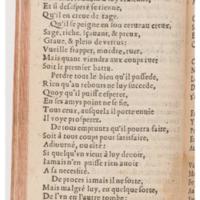 Et si desespere se tienne,
Qu'il en creue de rage.
Qu'il se peigne en son cerueau creux,
Sage, riche, sçauant, & preux,
Graue, & plein de vertus:
Vueille frapper, mordre, tuer,
Mais quant viendra aux coups ruer
Soit le premier battu.
Perdre tous le bien qu'il possede,
Rien qu'au rebours ne luy succede,
Quoy qu'il puisse esperer,
En ses amys point ne se fie,
Tous ceux, ausquels il porte enuie
Il voye prosperer.
De tous emprunts qu'il pourra faire,
Soit à tous coups pour satisfaire,
Adiourné, ou cité:
Si quelqu'vn vieux à luy deuoir,
Iamais n'en puisse rien auoir,
A sa necessité.
De proces iamais il ne sorte,
Mais malgré luy, en quelque sorte,
De l'vn en l'autre tombe: